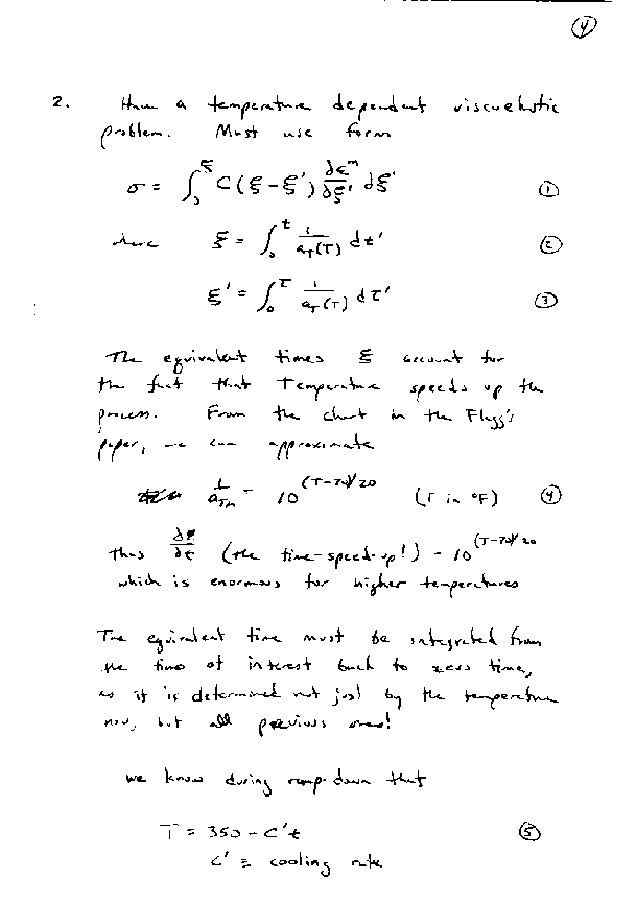 4
2. Have a temperature dependent viscoelastic
problem. Must use form
σ = ∫₀^ξ C(ξ-ξ') ∂εᵐ/∂ξ' dξ' ①
where ξ = ∫₀^t 1/a_T(T) dt' ②
ξ' = ∫₀^τ 1/a_T(T) dτ' ③
The equivalent times ξ account for
the fact that Temperature speeds up the
process. From the chart in the Flagg's
paper, we can approximate
1/a_Tm = 10^(T-70)/20 (T in °F) ④
thus ∂ξ/∂t (the time-speed-up!) = 10^(T-70)/20
which is enormous for higher temperatures
The equivalent time must be integrated from
the time of interest back to zero time,
as it is determined not just by the temperature
now, but all previous ones!
we know during ramp-down that
T = 350 - C't ⑤
C' ≡ cooling rate